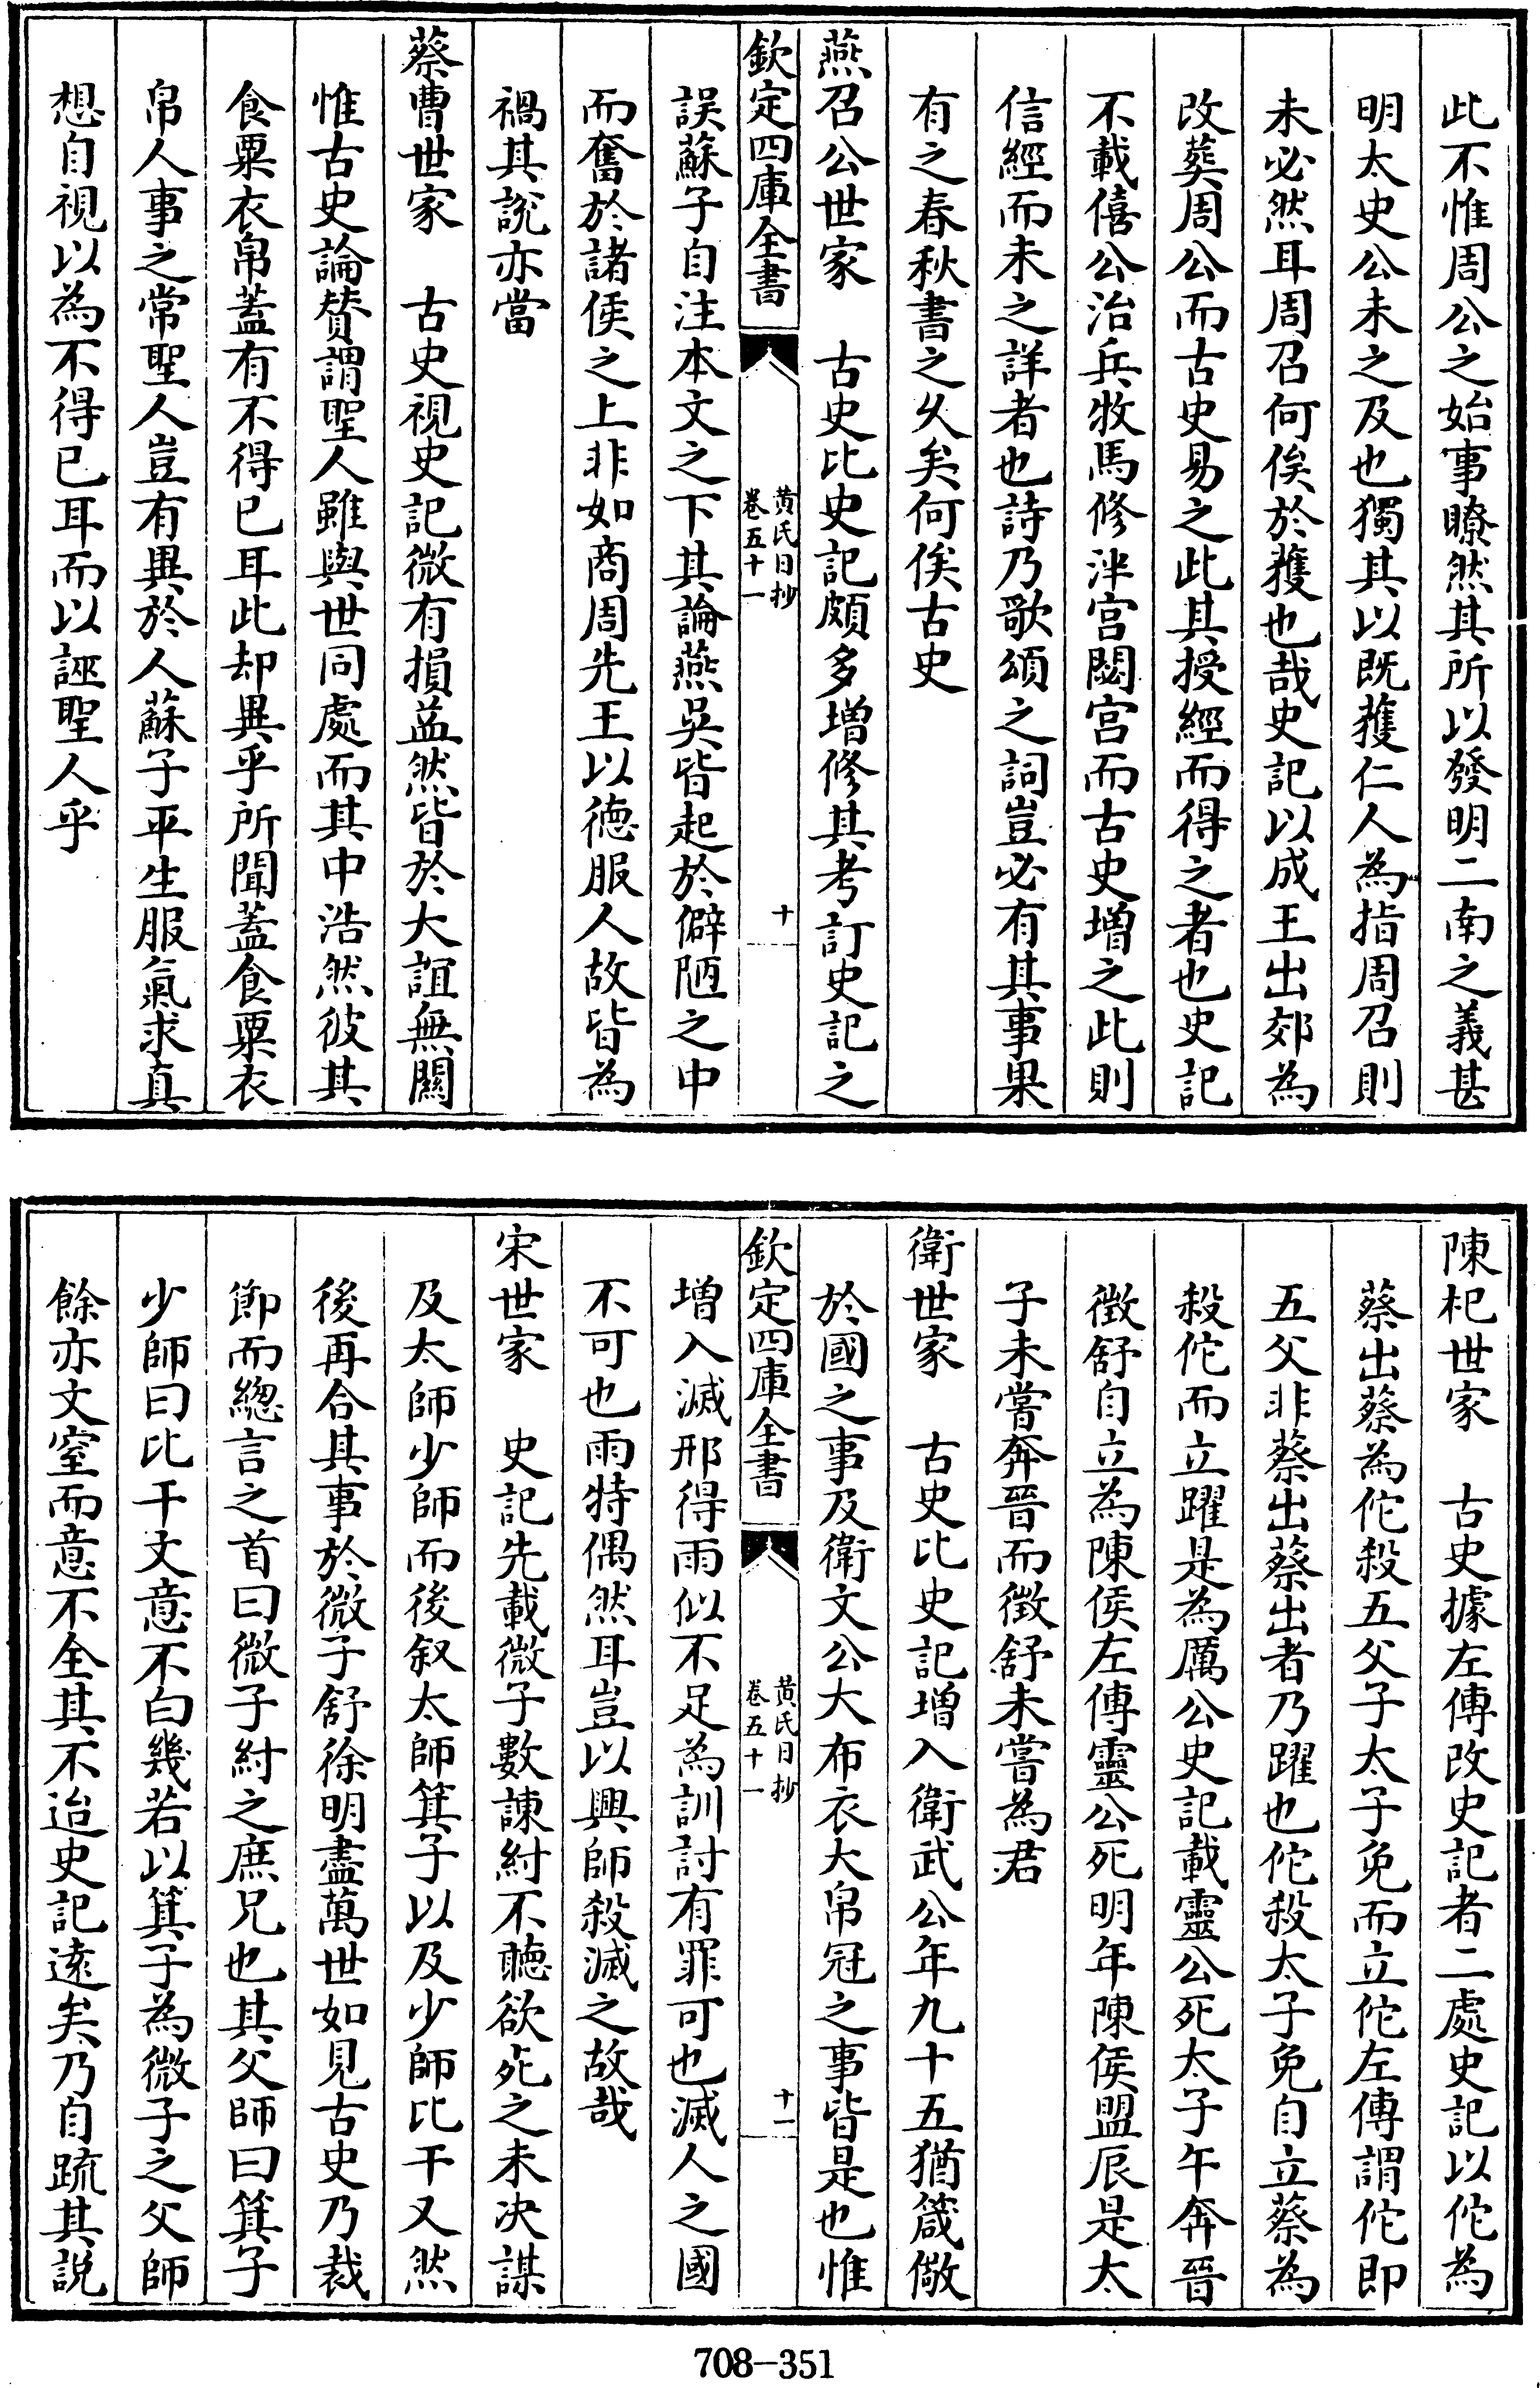 此不惟周公之始事瞭然其所以發明二南之義甚
明太史公未之及也獨其以既獲仁人為指周召則
未必然耳周召何俟於獲也哉史記以成王出郊為
改葬周公而古史易之此其授經而得之者也史記
不載僖公治兵牧馬修泮宫閟宫而古史增之此則
信經而未之詳者也詩乃歌頌之詞豈必有其事果
有之春秋書之乆矣何俟古史
燕召公世家　古史比史記頗多增修其考訂史記之
欽定四庫全書
黄氏日抄
卷五十一
十
誤蘇子自注本文之下其論燕吳皆起於僻陋之中
而奮於諸侯之上非如商周先王以德服人故皆為
禍其說亦當
蔡曹世家　古史視史記微有損益然皆於大誼無關
惟古史論賛謂聖人雖與世同處而其中浩然彼其
食粟衣帛蓋有不得已耳此却異乎所聞蓋食粟衣
帛人事之常聖人豈有異於人蘇子平生服氣求真
想自視以為不得已耳而以誣聖人乎
陳杞世家　古史據左傳改史記者二處史記以佗為
蔡出蔡為佗殺五父子太子免而立佗左傳謂佗即
五父非蔡出蔡出者乃躍也佗殺太子免自立蔡為
殺佗而立躍是為厲公史記載靈公死太子午奔晉
徴舒自立為陳侯左傳靈公死明年陳侯盟辰是太
子未嘗奔晉而徴舒未嘗為君
衛世家　古史比史記增入衛武公年九十五猶箴儆
於國之事及衛文公大布衣大帛冠之事皆是也惟
欽定四庫全書
黄氏日抄
卷五十一
十一
增入滅邢得雨似不足為訓討有罪可也滅人之國
不可也雨特偶然耳豈以興師殺滅之故哉
宋世家　史記先載微子數諫紂不聽欲死之未决謀
及太師少師而後叙太師箕子以及少師比干又然
後再合其事於微子舒徐明盡萬世如見古史乃裁
節而總言之首曰微子紂之庶兄也其父師曰箕子
少師曰比干文意不白幾若以箕子為微子之父師
餘亦文窒而意不全其不迨史記逺矣乃自䟽其説
708-351